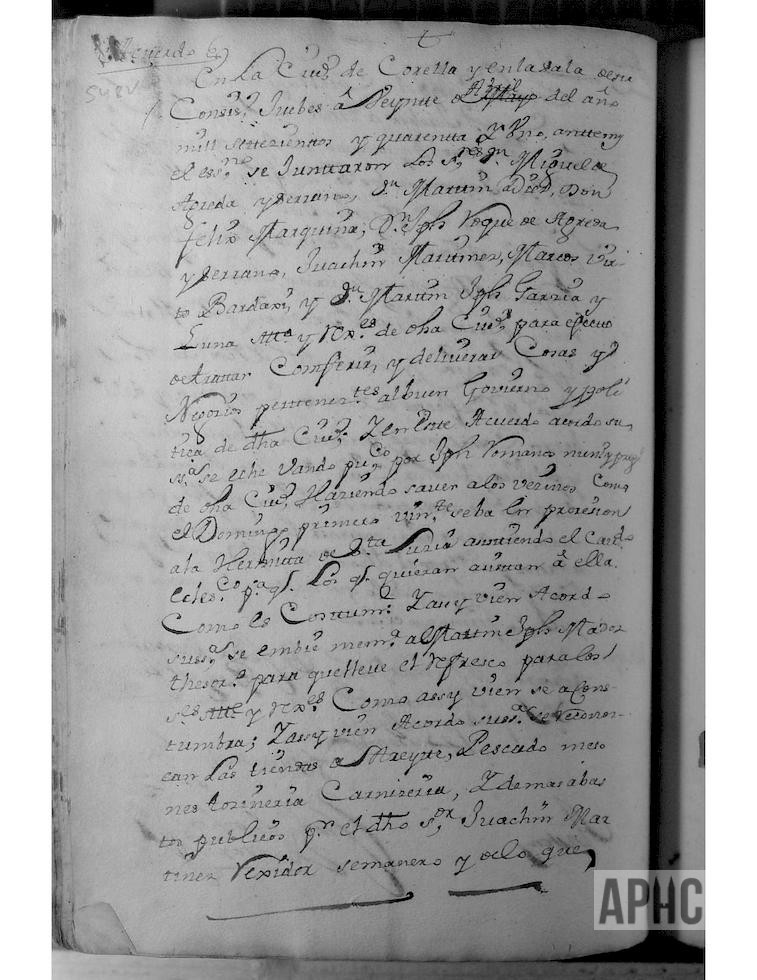 Acuerdo 6
54RV
En La Ciud. de Corella y en la sala de su
Consis.o Juebes â Veynte de Abril Mayo del año
mill settezientos y quarenta y Uno, antte my
el ess.no se Junttaron Los s.res Dn. Miguel de
Agreda y Serrano, Dn. Marttin
Felix Marquina, Dn. Jph Roque de Agreda
y Serrano, Juachin Marttinez, Marcos Vir
to Bardaxi, y Dn. Marttin Jph Garzia y
Luna Alld. y Rex.es de dha Ciud. para efecto
de trattar Comferir, y deliverar Cosas y
Negozios perttenez.tes al buen Govierno y poli
tica de dtha Ciud. Y en este Acuerdo acordo su
s.a se eche Vando pu.co por Jph Romanos nunz.o y preg.o
de dha Ciud. Haziendo saver a los vezinos Como
el Domingo primero vin.te se ba en prozesion
a la Hermitta de S.ta Luzia asistiendo el Cavildo
Ecles.co p.a q.e Los q.e quieran asistan â ella
Como es Costum.e Y assy vien Acordo
su ss.a se embie mem.l a Marttin Jph Mador
thesor.o para que lleve el Refresco para los
s.es Alld. y Rex.es Como assy vien se acons-
tumbra; Y assy vien Acordo su ss.a Se reconoz-
can Las tiendas de Azeyte, Pescado meso
nes tozineria Carnizeria, Y demas abas
tos publicos p.r el dtho s.or Juachin Mar
tinez Rexidor semanero y de lo que
APHC